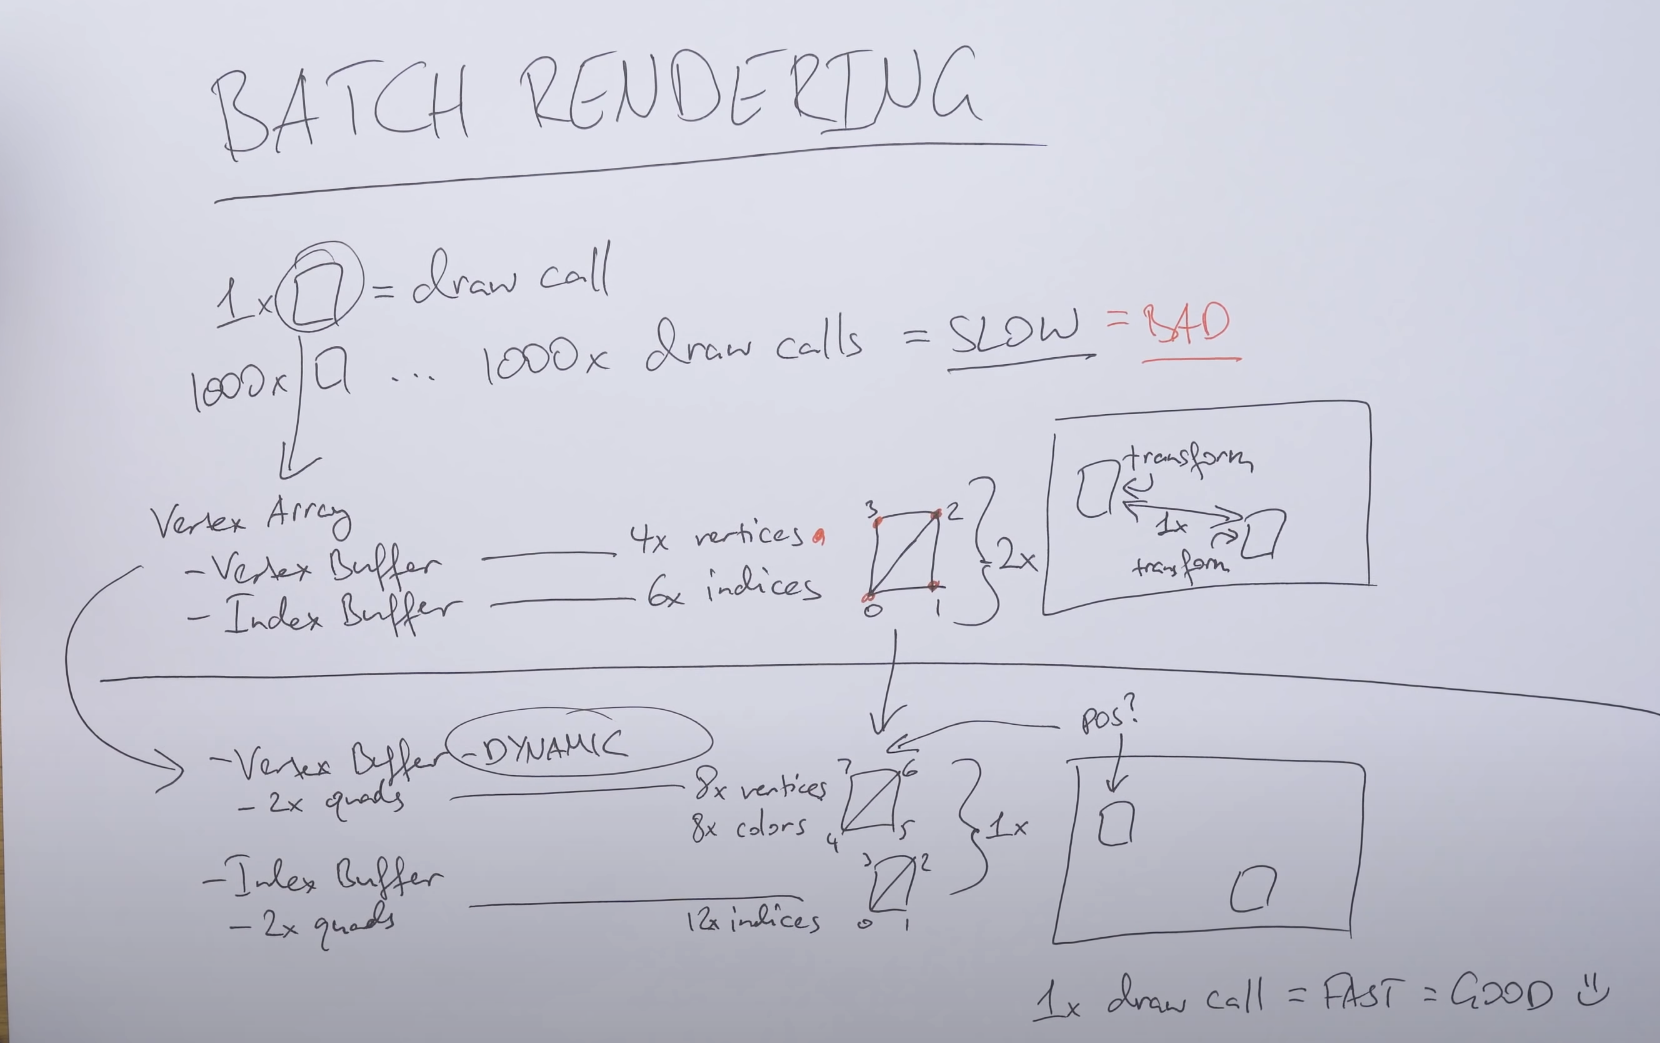 BATCH RENDERING
1x = draw call
1000x ... 1000x draw calls = SLOW = BAD
Vertex Array
- Vertex Buffer 4x vertices
- Index Buffer 6x indices
3 2
0 1
2x
transform
1x
transform
- Vertex Buffer - DYNAMIC
- 2x quads 8x vertices
8x colors
7 6
4 5
3 2
0 1
1x
POS?
- Index Buffer
- 2x quads 12x indices
1x draw call = FAST = GOOD